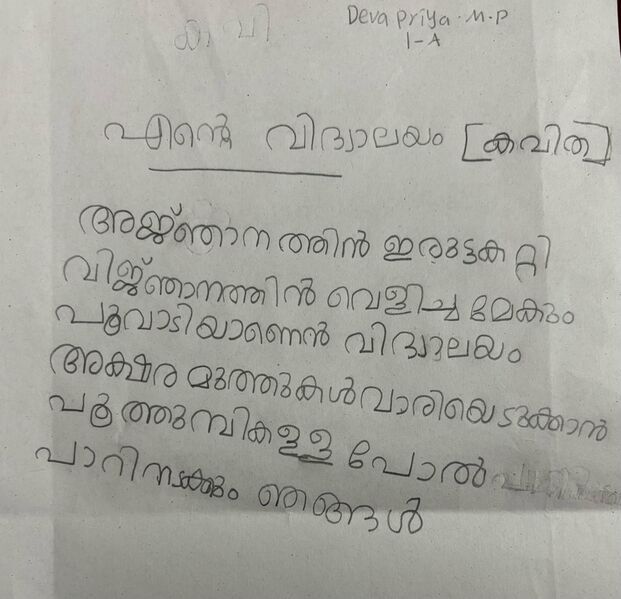 കവി
Devapriya. M.P
1-A
എന്റെ വിദ്യാലയം [കവിത]
അജ്ഞാനത്തിൻ ഇരുട്ടകറ്റി
വിജ്ഞാനത്തിൻ വെളിച്ചമേകും
പൂവാടിയാണെൻ വിദ്യാലയം
അക്ഷരമുത്തുകൾ വാരിയെടുക്കാൻ
പൂത്തുമ്പികളള പോൽ
പാറിനടക്കും ഞങ്ങൾ